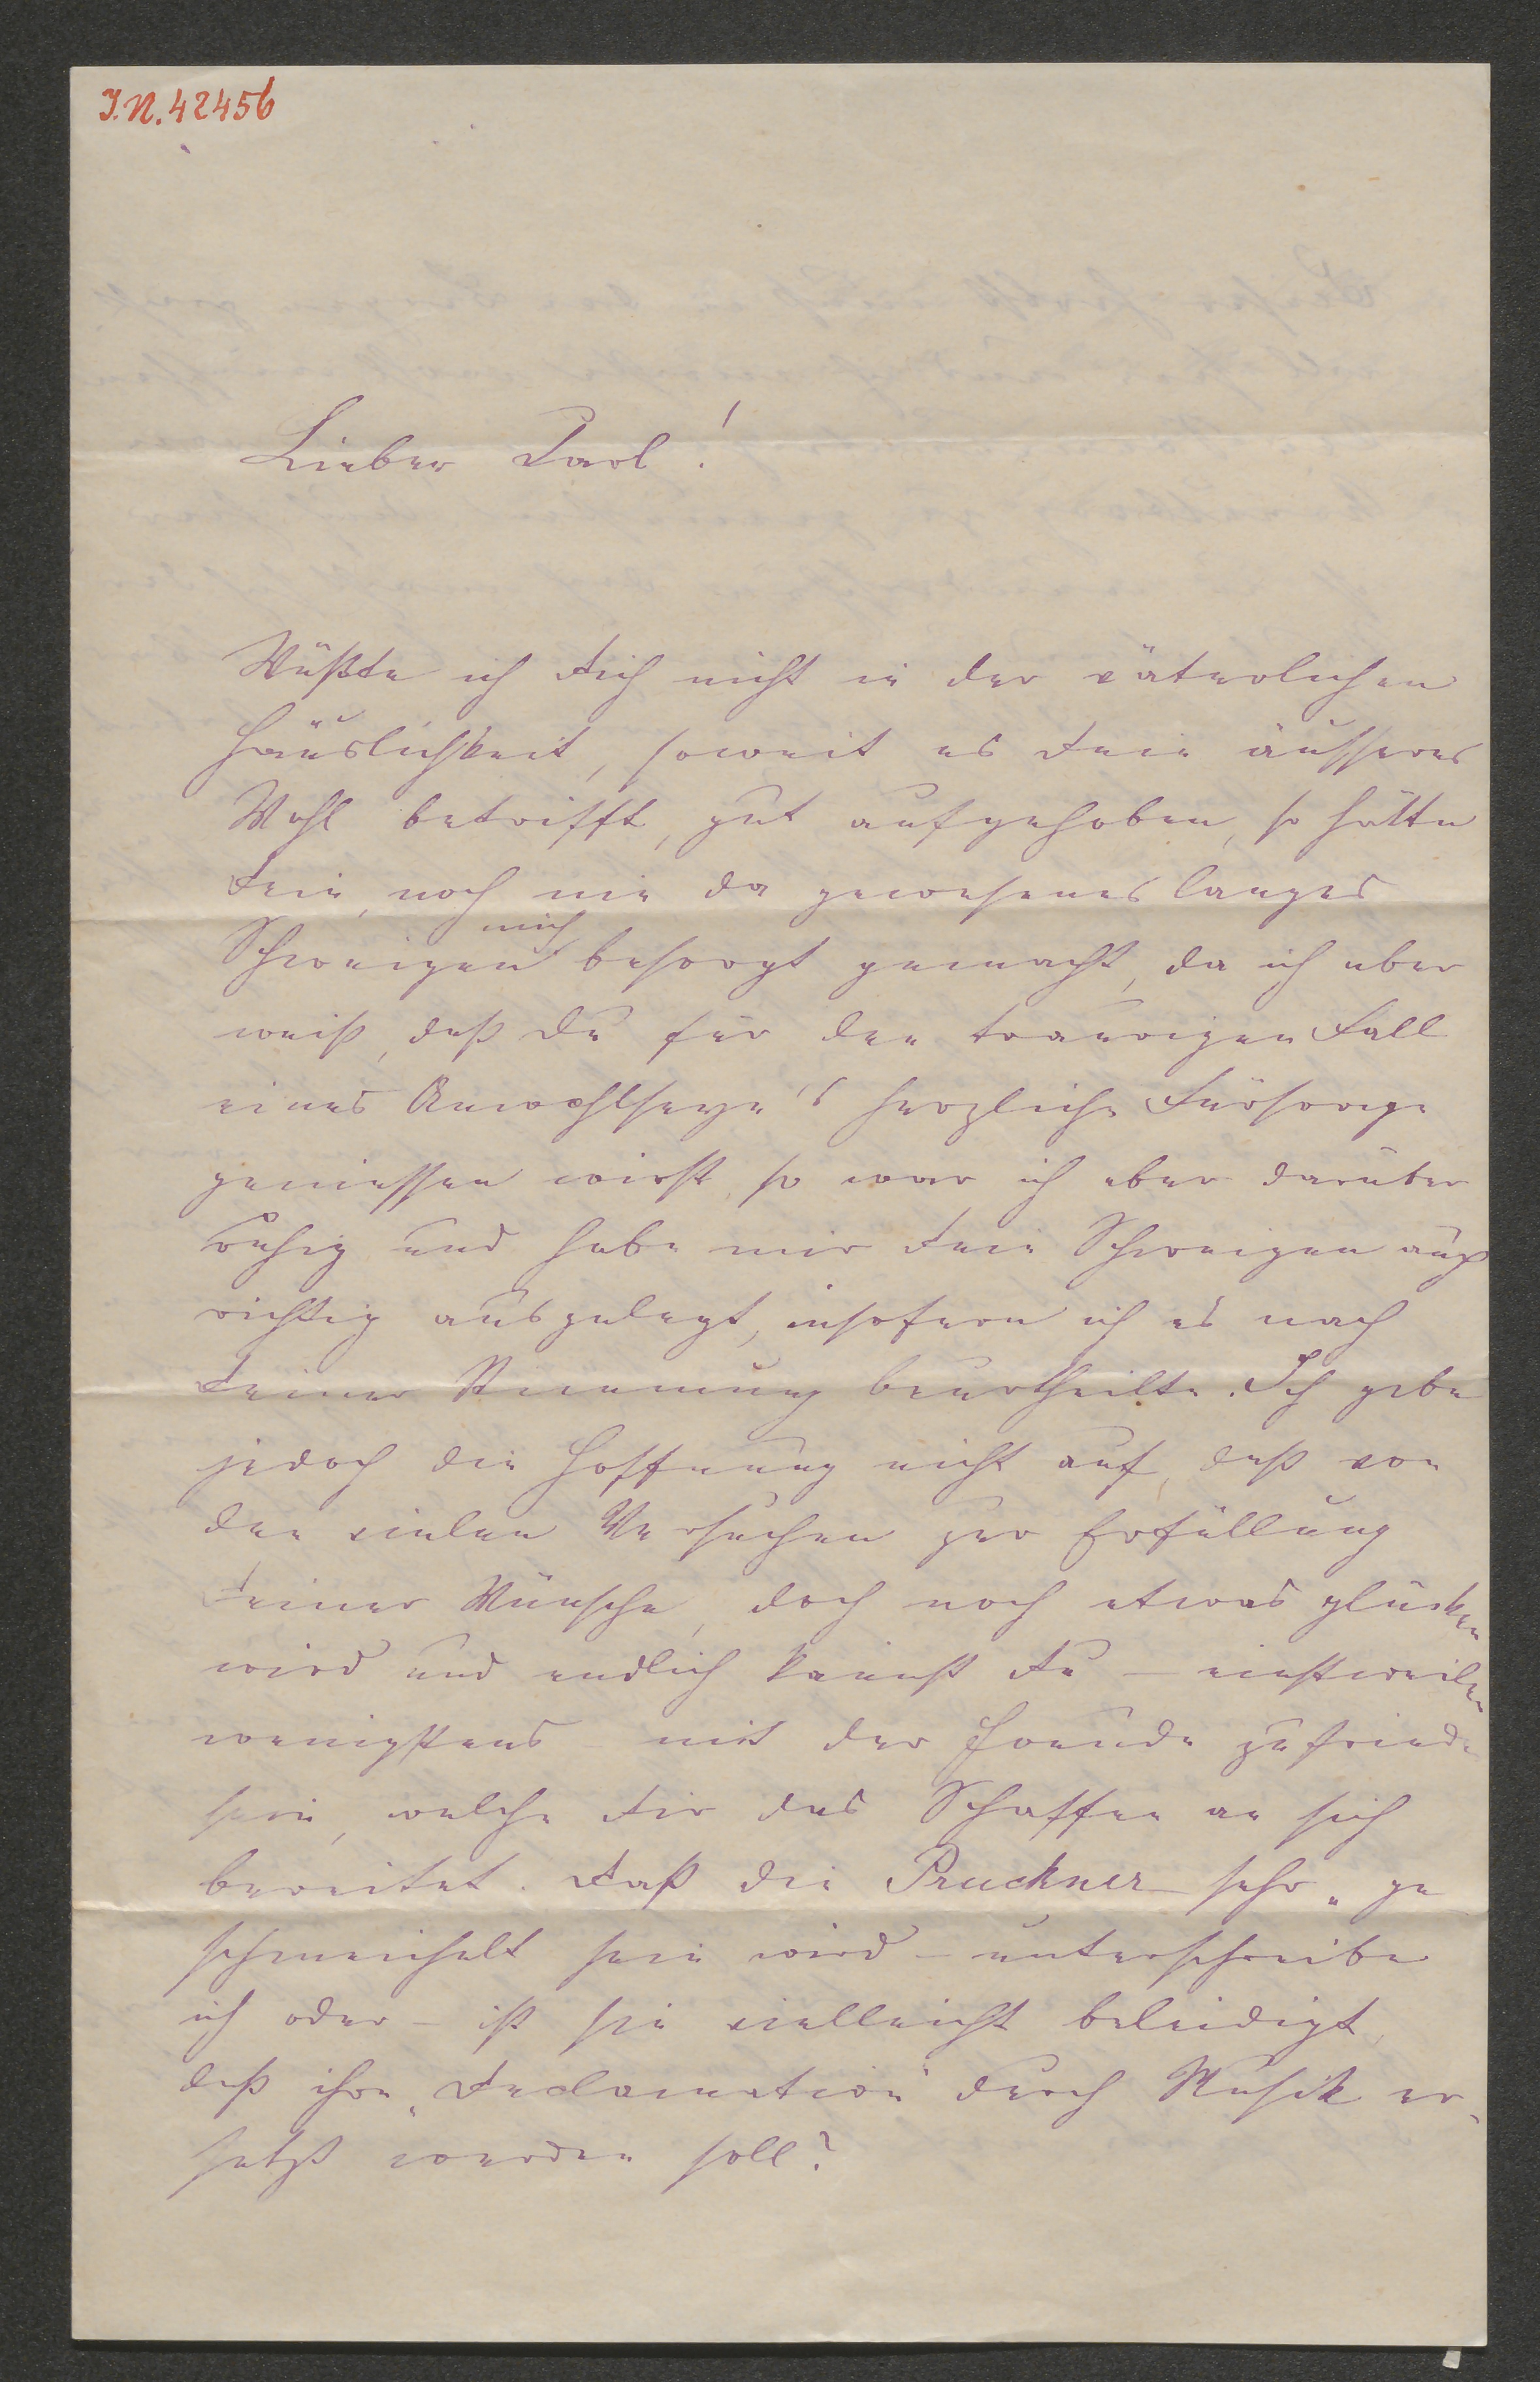 I.N. 42456
Lieber Carl!
Wüßte ich Dich nicht in der väterlichen
Häuslichkeit, soweit es Dein äusseres
Wohl betrifft, gut aufgehoben, so hätte
Dein, noch nie da gewesenes langes
mich
Schweigen besorgt gemacht, da ich aber
weiß, daß Du für den traurigen Fall
eines Unwohlseyn's herzliche Fürsorge
geniessen wirst, so war ich aber darüber
ruhig und habe mir Dein Schweigen auch
richtig ausgelegt, insofern ich es nach
Deiner Stimmung beurtheilte. Ich gebe
jedoch die Hoffnung nicht auf, daß von
den vielen Versuchen zur Erfüllung
Deiner Wünsche, doch noch etwas glücken
wird und endlich kannst Du – einstweilen
wenigstens – mit der Freude zufrieden
sein, welche Dir das Schaffen an sich
bereitet. Daß die Pruckner sehr „ge
schmeichelt sein wird – unterschreibe
ich oder – ist sie vielleicht beleidigt,
daß ihre „Declamation" durch Musik er-
setzt werden soll?